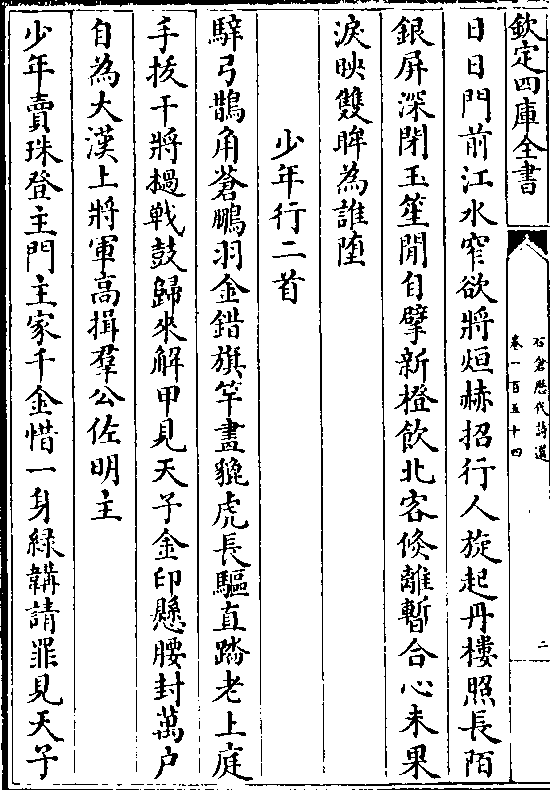 欽定四庫全書
石倉歷代詩選
卷一百五十四
二
日日門前江水窄欲將烜赫招行人旋起丹樓照長陌
銀屏深閉玉笙閒自擘新橙飲北客倏離暫合心未果
淚映雙眸為誰墮
少年行二首
騂弓鵲角蒼鵰羽金錯旗竿畫貔虎長驅直踏老上庭
手拔干將撾戰鼓歸來解甲見天子金印懸腰封萬户
自為大漢上將軍高揖羣公佐明主
少年賣珠登主門主家千金惜一身緑韝請罪見天子